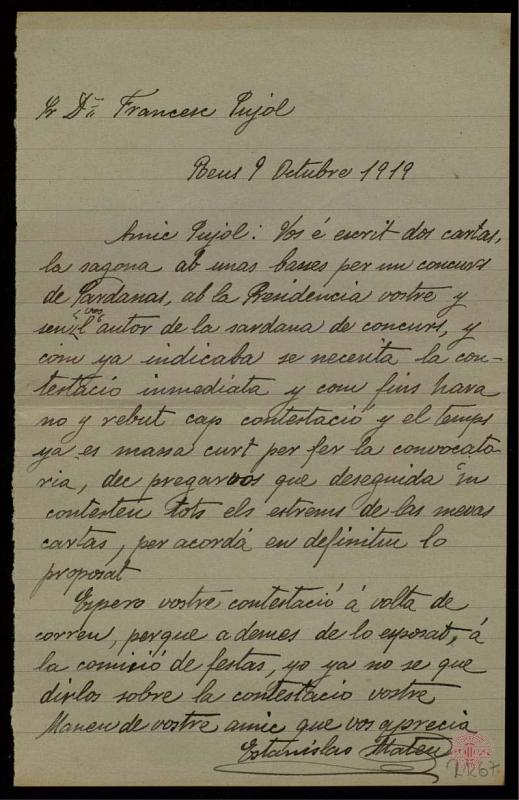 Sr Dn Francesc Pujol
Reus 9 Octubre 1919
Amic Pujol: Vos é escrit dos cartas,
la sagona ab unas bases per un concurs
de Sardanas, ab la Presidencia vostre y
sen vos l'autor de la sardana de concurs, y
com ya indicaba se necesita la con-
testació inmediata y com fins hara
no y rebut cap contestació y el temps
ya es massa curt per fer la convocato-
ria, dec pregarvos que deseguida m
contesteu tots els estrems de las mevas
cartas, per acordá en definitiu lo
proposat
Espero vostre contestació á volta de
correu, perque ademes de lo exposat, á
la comició de festas, yo ya no se que
dirlos sobre la contestació vostre
Maneu de vostre amic que vos aprecia
Estanislao Mateu